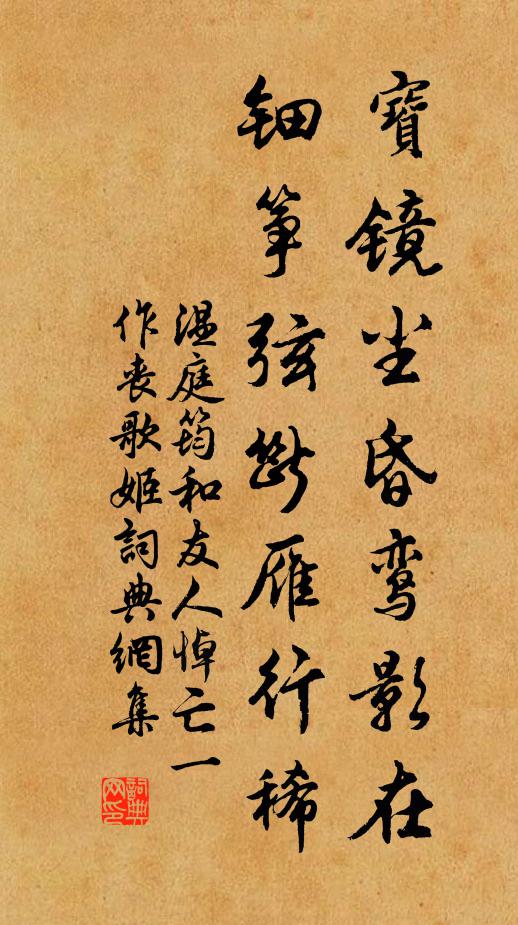 寶镜尘昏鸾影在
钿筝弦斷雁行稀
温庭筠和友人悼亡一
作丧歌姬詞典網集
詞典网印